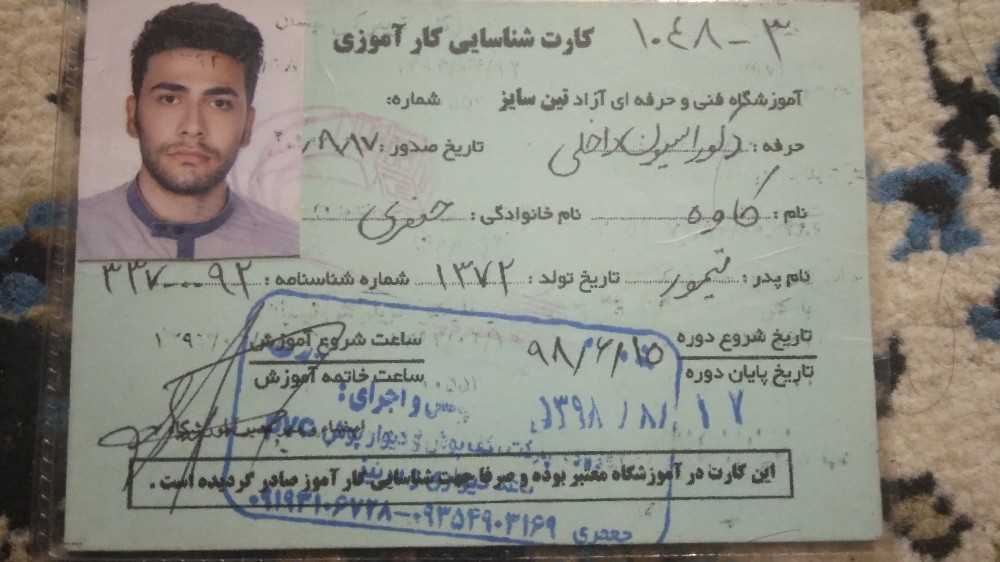 کارت شناسایی کار آموزی ۱۰۴۸-۳
آموزشگاه فنی و حرفه ای آزاد تین سایز شماره:
حرفه: دکوراسیون داخلی تاریخ صدور: ۸/۱۷
نام: کاوه نام خانوادگی: جعفری
نام پدر: تیمور تاریخ تولد: ۱۳۷۲ شماره شناسنامه: ۳۳۷۰۰۰۹۲
تاریخ شروع دوره ۹۸/۶/۱۵ ساعت شروع آموزش
تاریخ پایان دوره ساعت خاتمه آموزش
۱۳۹۸/۸/۱۷
و اجرای:
پارکت، کف پوش و دیوار پوش pvc
این کارت در آموزشگاه معتبر بوده و صرفا جهت شناسایی کار آموز صادر گردیده است.
جعفری ۰۹۳۵۴۹۰۳۱۶۹-۰۹۱۹۳۱۰۶۷۲۸